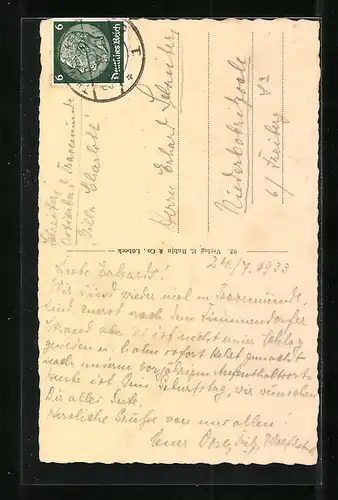 6 Deutsches Reich 6
1
Herrn Erhard Schreiber
Niederbobritzsch
b/ Freiberg
Ostseebad Travemünde
Villa Charlott
62 Verlag R. Rubin & Co., Lübeck
24./7. 1933
Liebe Erhards!
Wir sind wieder mal in Travemünde,
sind zuerst nach dem Timmendorfer
Strand aber es ist nicht unser
geworden u. haben sofort Kehrt gemacht
nach unserm vorjährigen Aufenthaltsort.
Heute ist Dein Geburtstag, wir wünschen
Dir alles Gute.
Herzliche Grüße von uns allen!
Euer